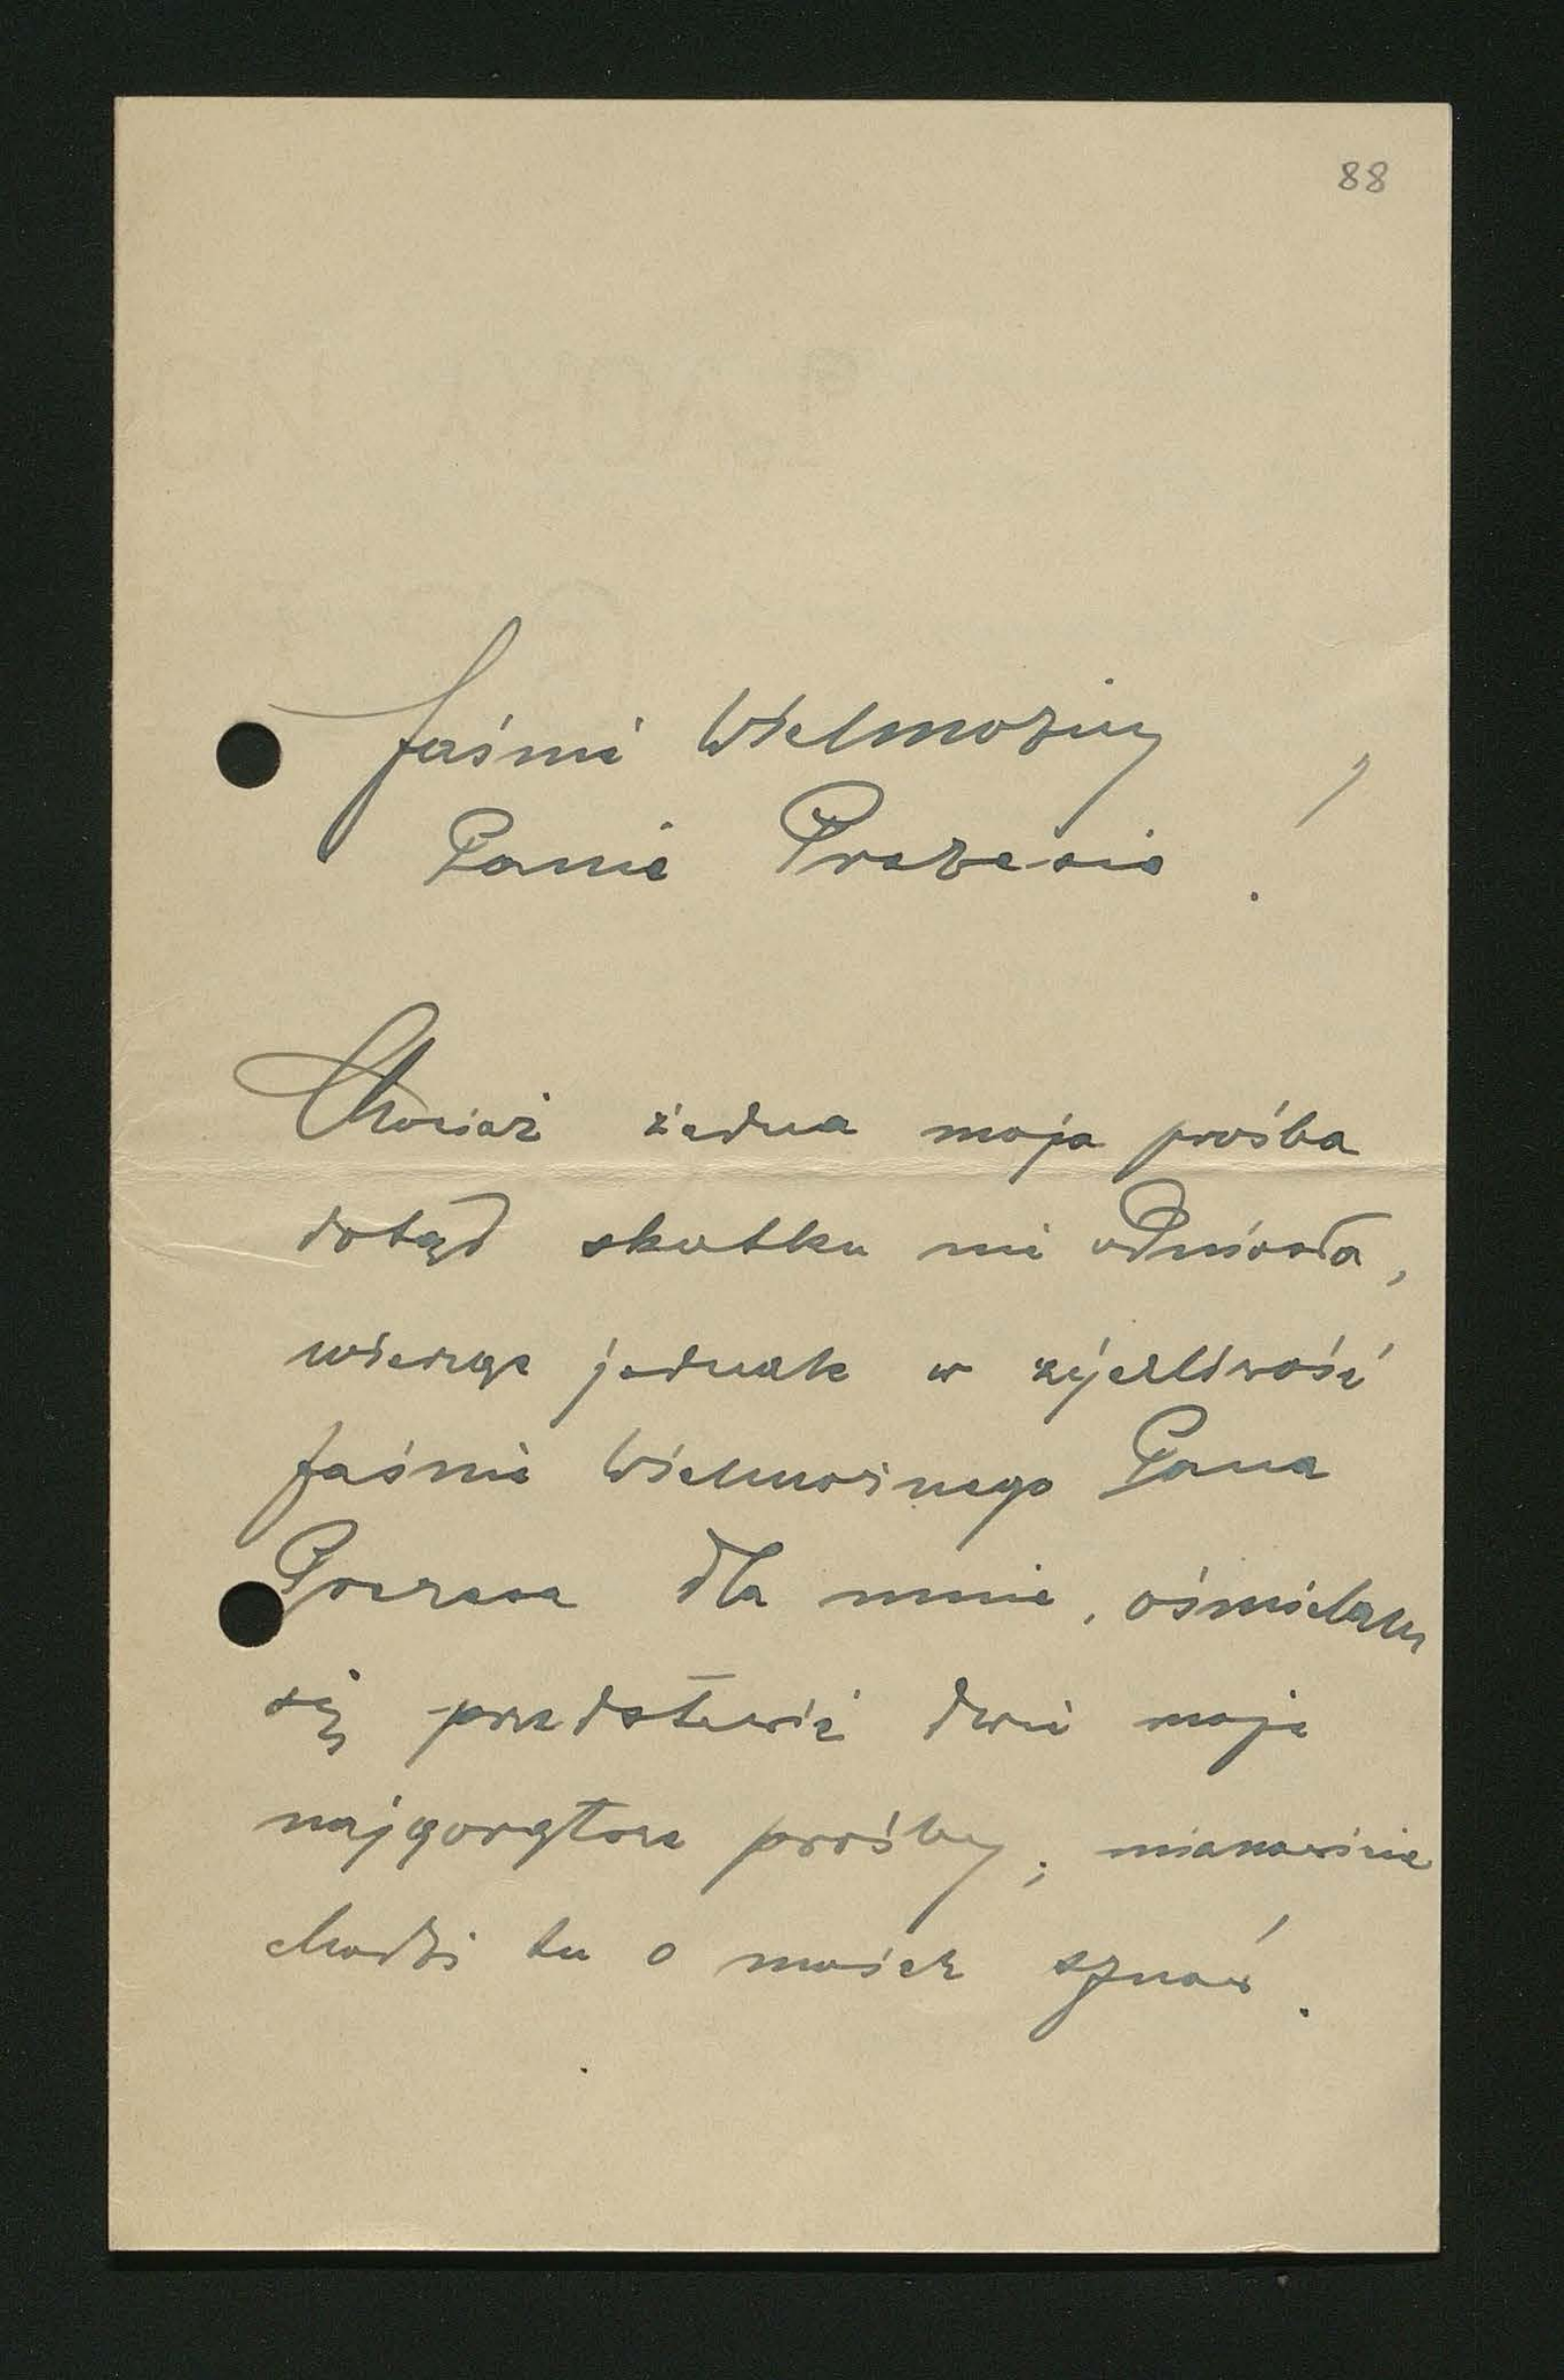 88
Jaśnie Wielmożny
Panie Prezesie !
Chociaż żadna moja prośba
dotąd skutku nie odniosła,
wierzę jednak w życzliwość
Jaśnie Wielmożnego Pana
Prezesa dla mnie, ośmielam
się przedstawić dwie moje
najgorętsze prośby; mianowicie
chodzi tu o moich synów.